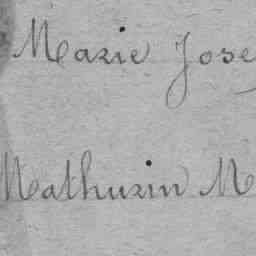 Marie Jose
Mathurin M